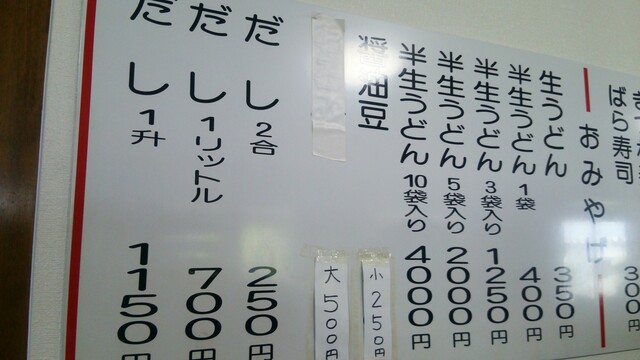 ばら寿司 300円
おみやげ
生うどん 350円
半生うどん 1袋 400円
半生うどん 3袋入り 1250円
半生うどん 5袋入り 2000円
半生うどん 10袋入り 4000円
醤油豆 小 250円
大 500円
だし 2合 250円
だし 1リットル 700円
だし 1升 1150円